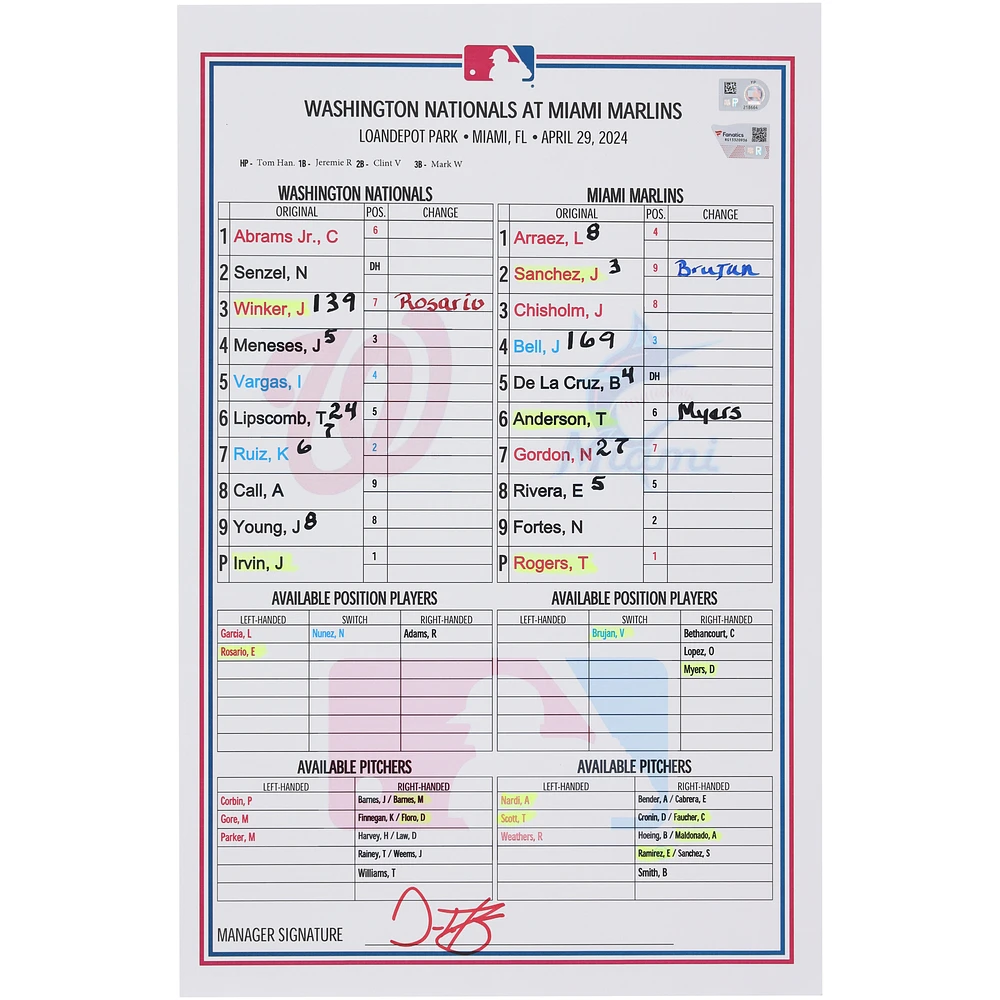 WASHINGTON NATIONALS AT MIAMI MARLINS
LOANDEPOT PARK • MIAMI, FL • APRIL 29, 2024
HP - Tom Han. 1B - Jeremie R 2B - Clint V 3B - Mark W
WASHINGTON NATIONALS
ORIGINAL POS. CHANGE
1 Abrams Jr., C 6
2 Senzel, N DH
3 Winker, J 139 7 Rosario
4 Meneses, J 5 3
5 Vargas, I 4
6 Lipscomb, T 24 7 5
7 Ruiz, K 6 2
8 Call, A 9
9 Young, J 8 8
P Irvin, J 1
MIAMI MARLINS
ORIGINAL POS. CHANGE
1 Arraez, L 8 4
2 Sanchez, J 3 9 Brujan
3 Chisholm, J 8
4 Bell, J 169 3
5 De La Cruz, B 4 DH
6 Anderson, T 6 Myers
7 Gordon, N 27 7
8 Rivera, E 5 5
9 Fortes, N 2
P Rogers, T 1
Miami
AVAILABLE POSITION PLAYERS
LEFT-HANDED SWITCH RIGHT-HANDED
Garcia, L Nunez, N Adams, R
Rosario, E
AVAILABLE POSITION PLAYERS
LEFT-HANDED SWITCH RIGHT-HANDED
Brujan, V Bethancourt, C
Lopez, O
Myers, D
AVAILABLE PITCHERS
LEFT-HANDED RIGHT-HANDED
Corbin, P Barnes, J / Barnes, M
Gore, M Finnegan, K / Floro, D
Parker, M Harvey, H / Law, D
Rainey, T / Weems, J
Williams, T
AVAILABLE PITCHERS
LEFT-HANDED RIGHT-HANDED
Nardi, A Bender, A / Cabrera, E
Scott, T Cronin, D / Faucher, C
Weathers, R Hoeing, B / Maldonado, A
Ramirez, E / Sanchez, S
Smith, B
MANAGER SIGNATURE
Fanatics